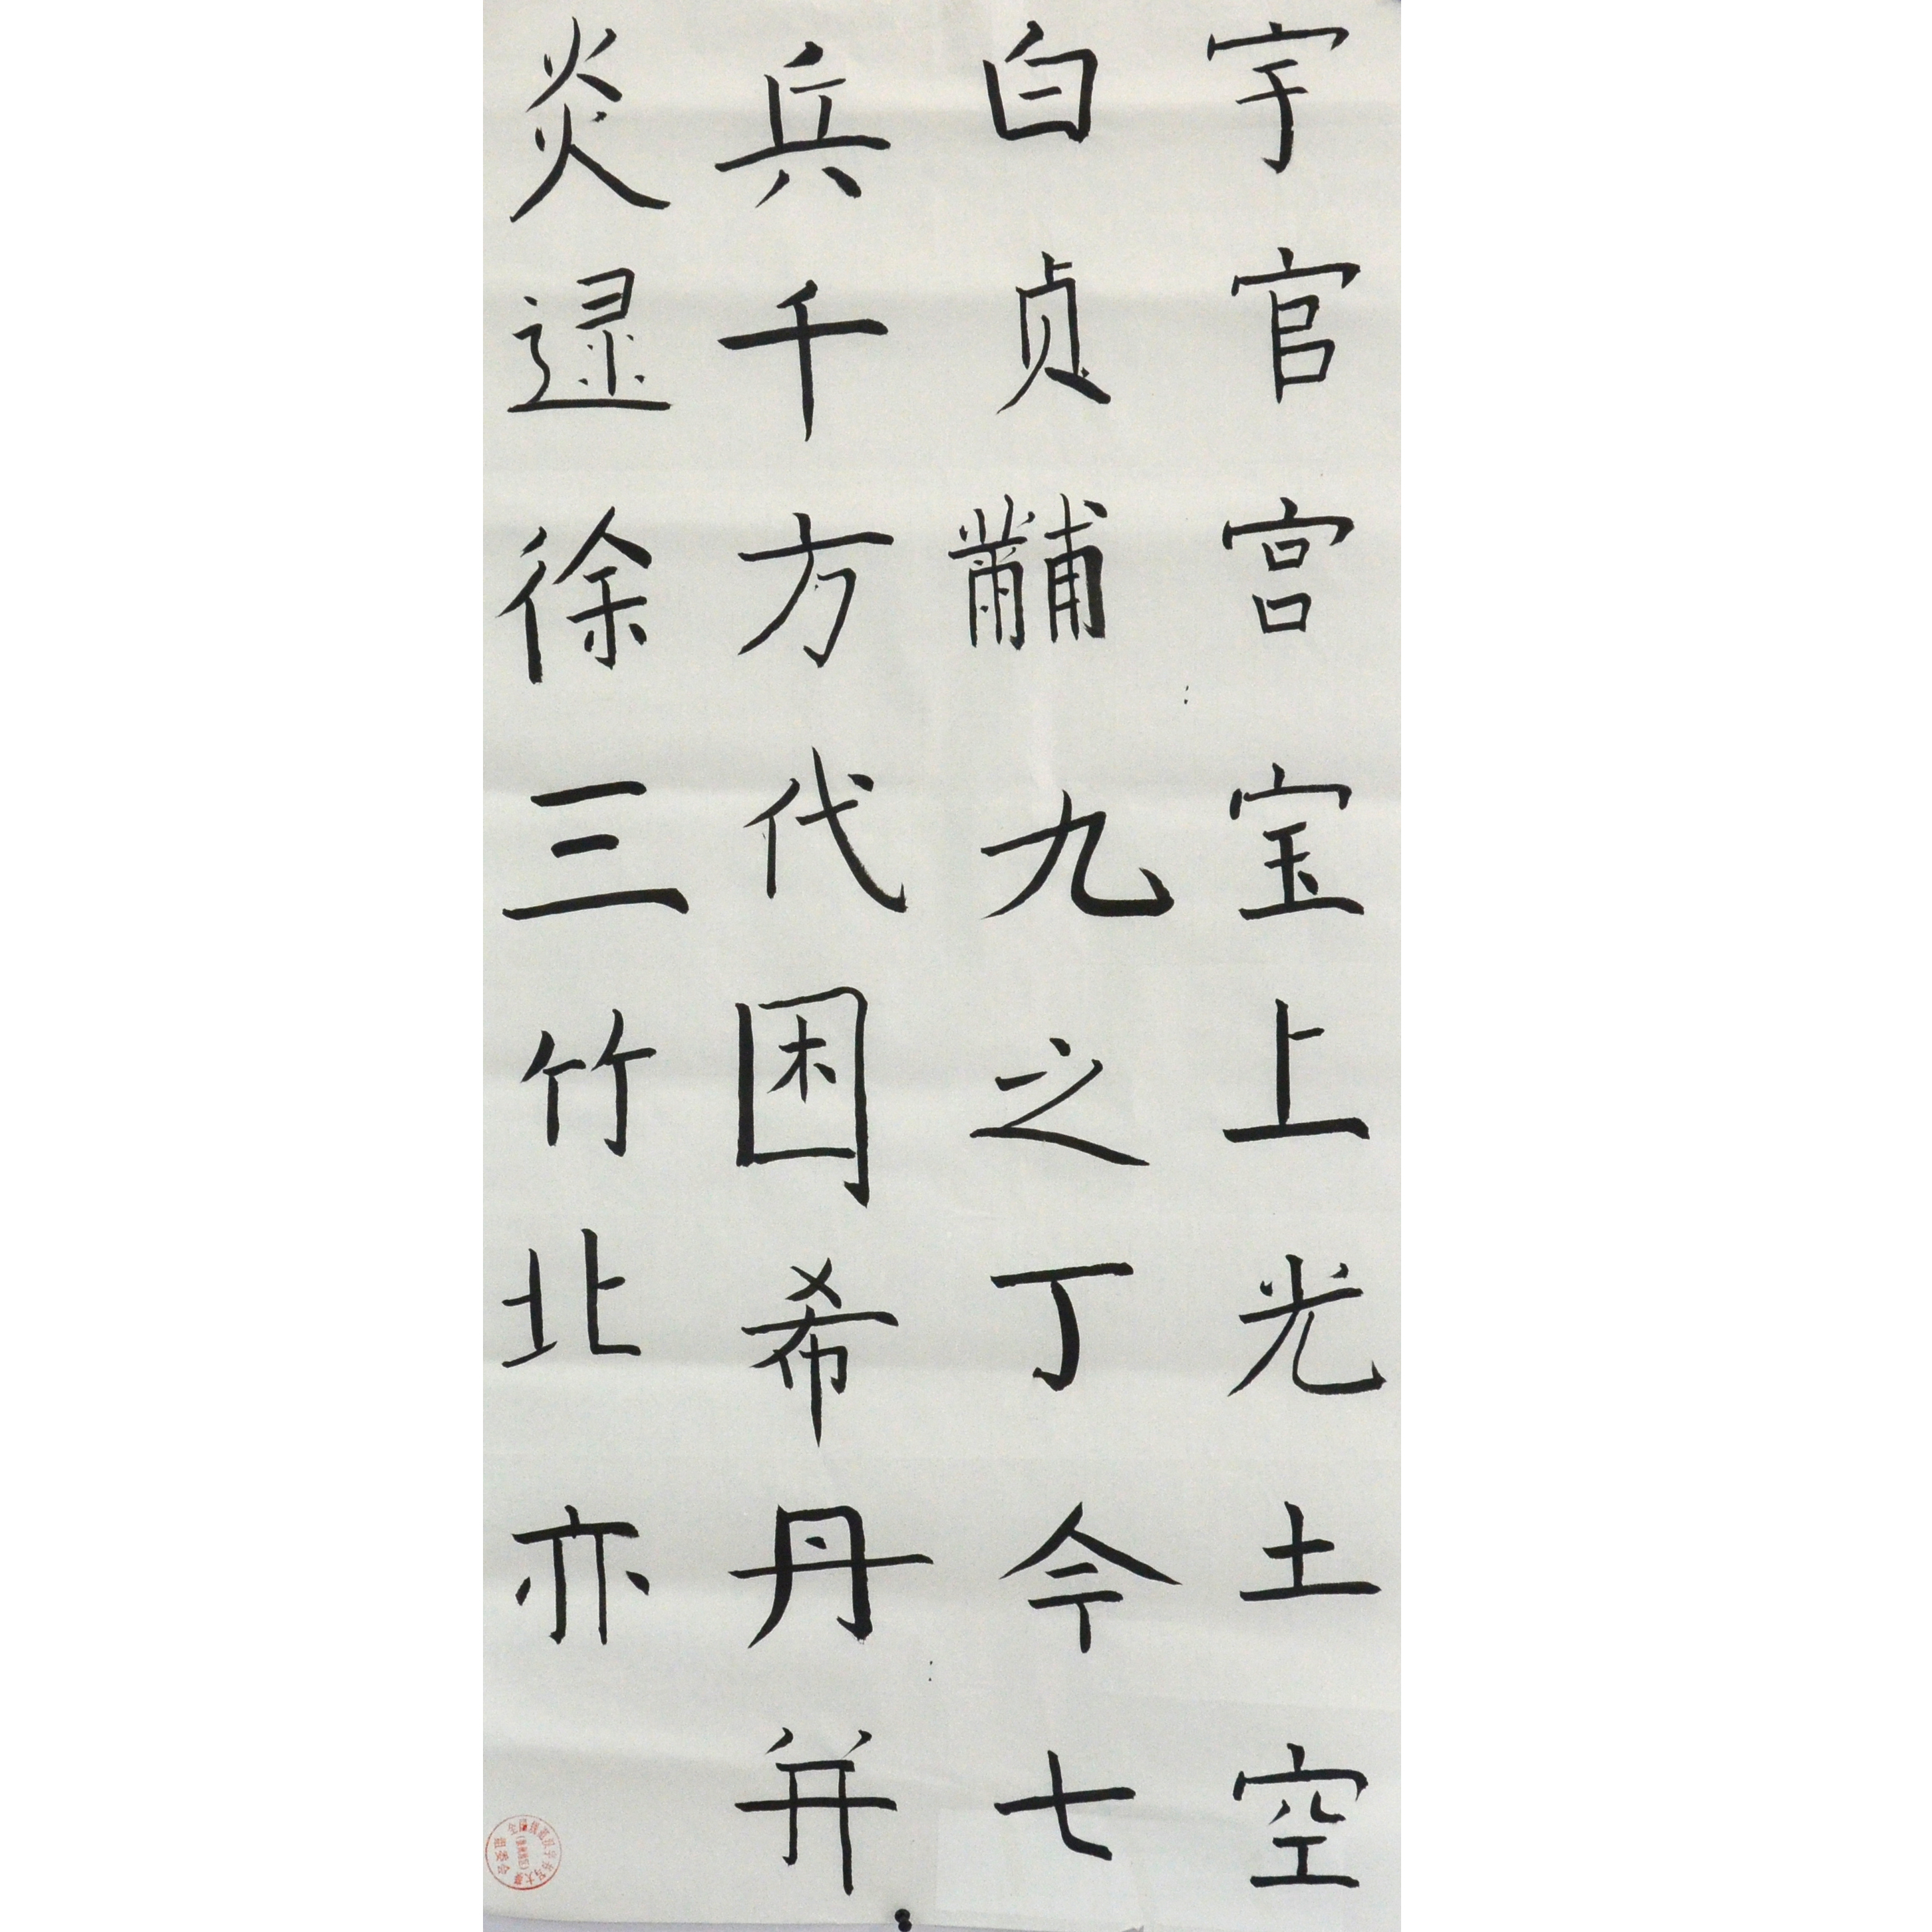 宇官宫宝上光土空
白贞黼九之丁今七
兵千方代困希丹并
炎逯徐三竹北亦